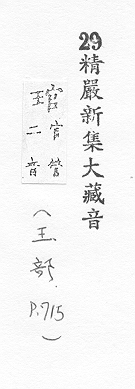 29精嚴新集大藏音
琯官管
二音
(玉部 P.715)